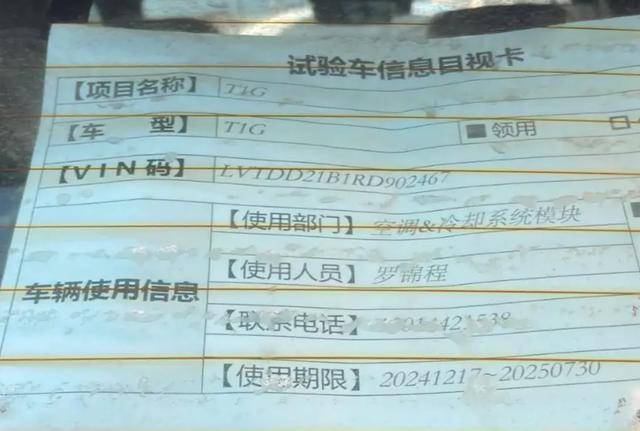 试验车信息目视卡
【项目名称】 T1G
【车 型】 T1G ■领用 □
【VIN码】 LVTDD21B1RD902467
【使用部门】 空调&冷却系统模块
车辆使用信息
【使用人员】 罗锦程
【联系电话】
【使用期限】 20241217~20250730